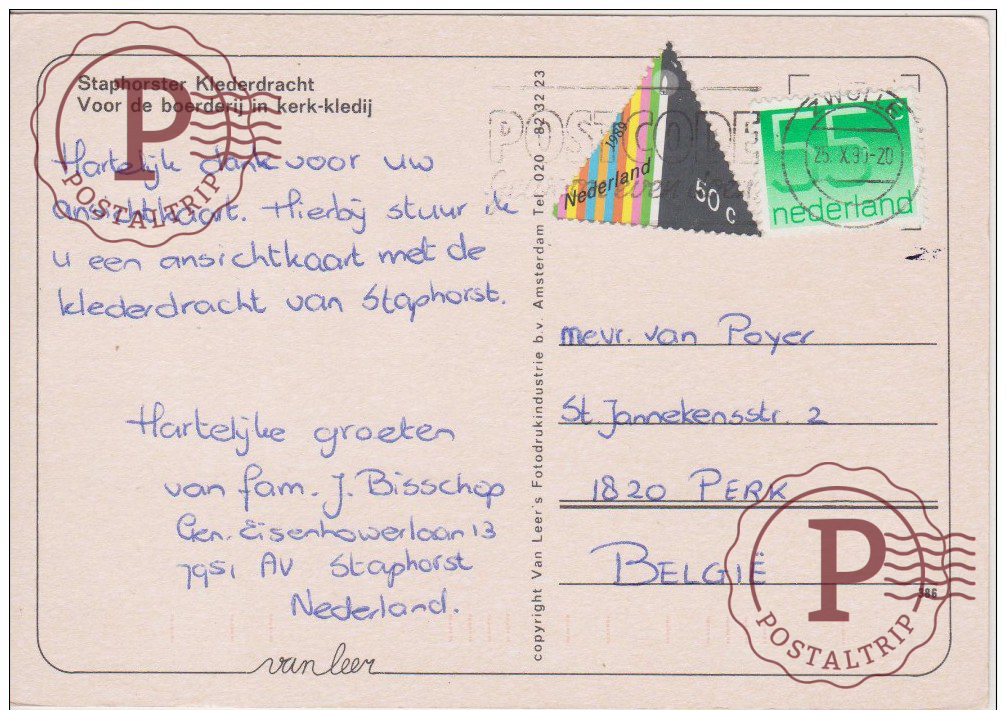 Staphorster Klederdracht
Voor de boerderij in kerk-kledij
Hartelijk dank voor uw
ansichtkaart. Hierbij stuur ik
u een ansichtkaart met de
klederdracht van Staphorst.
Hartelijke groeten
van fam. J. Bisschop
Gen. Eisenhowerlaan 13
7951 AV Staphorst
Nederland.
van leer
copyright Van Leer's Fotodrukindustrie b.v. Amsterdam Tel. 020 - 82 32 23
POSTCODE
1989
Nederland
50 c
ZWOLLE
25.X.90-20
55
nederland
mevr. van Poyer
St. Jannekensstr. 2
1820 PERK
BELGIË
386
P
POSTALTRIP
P
POSTALTRIP